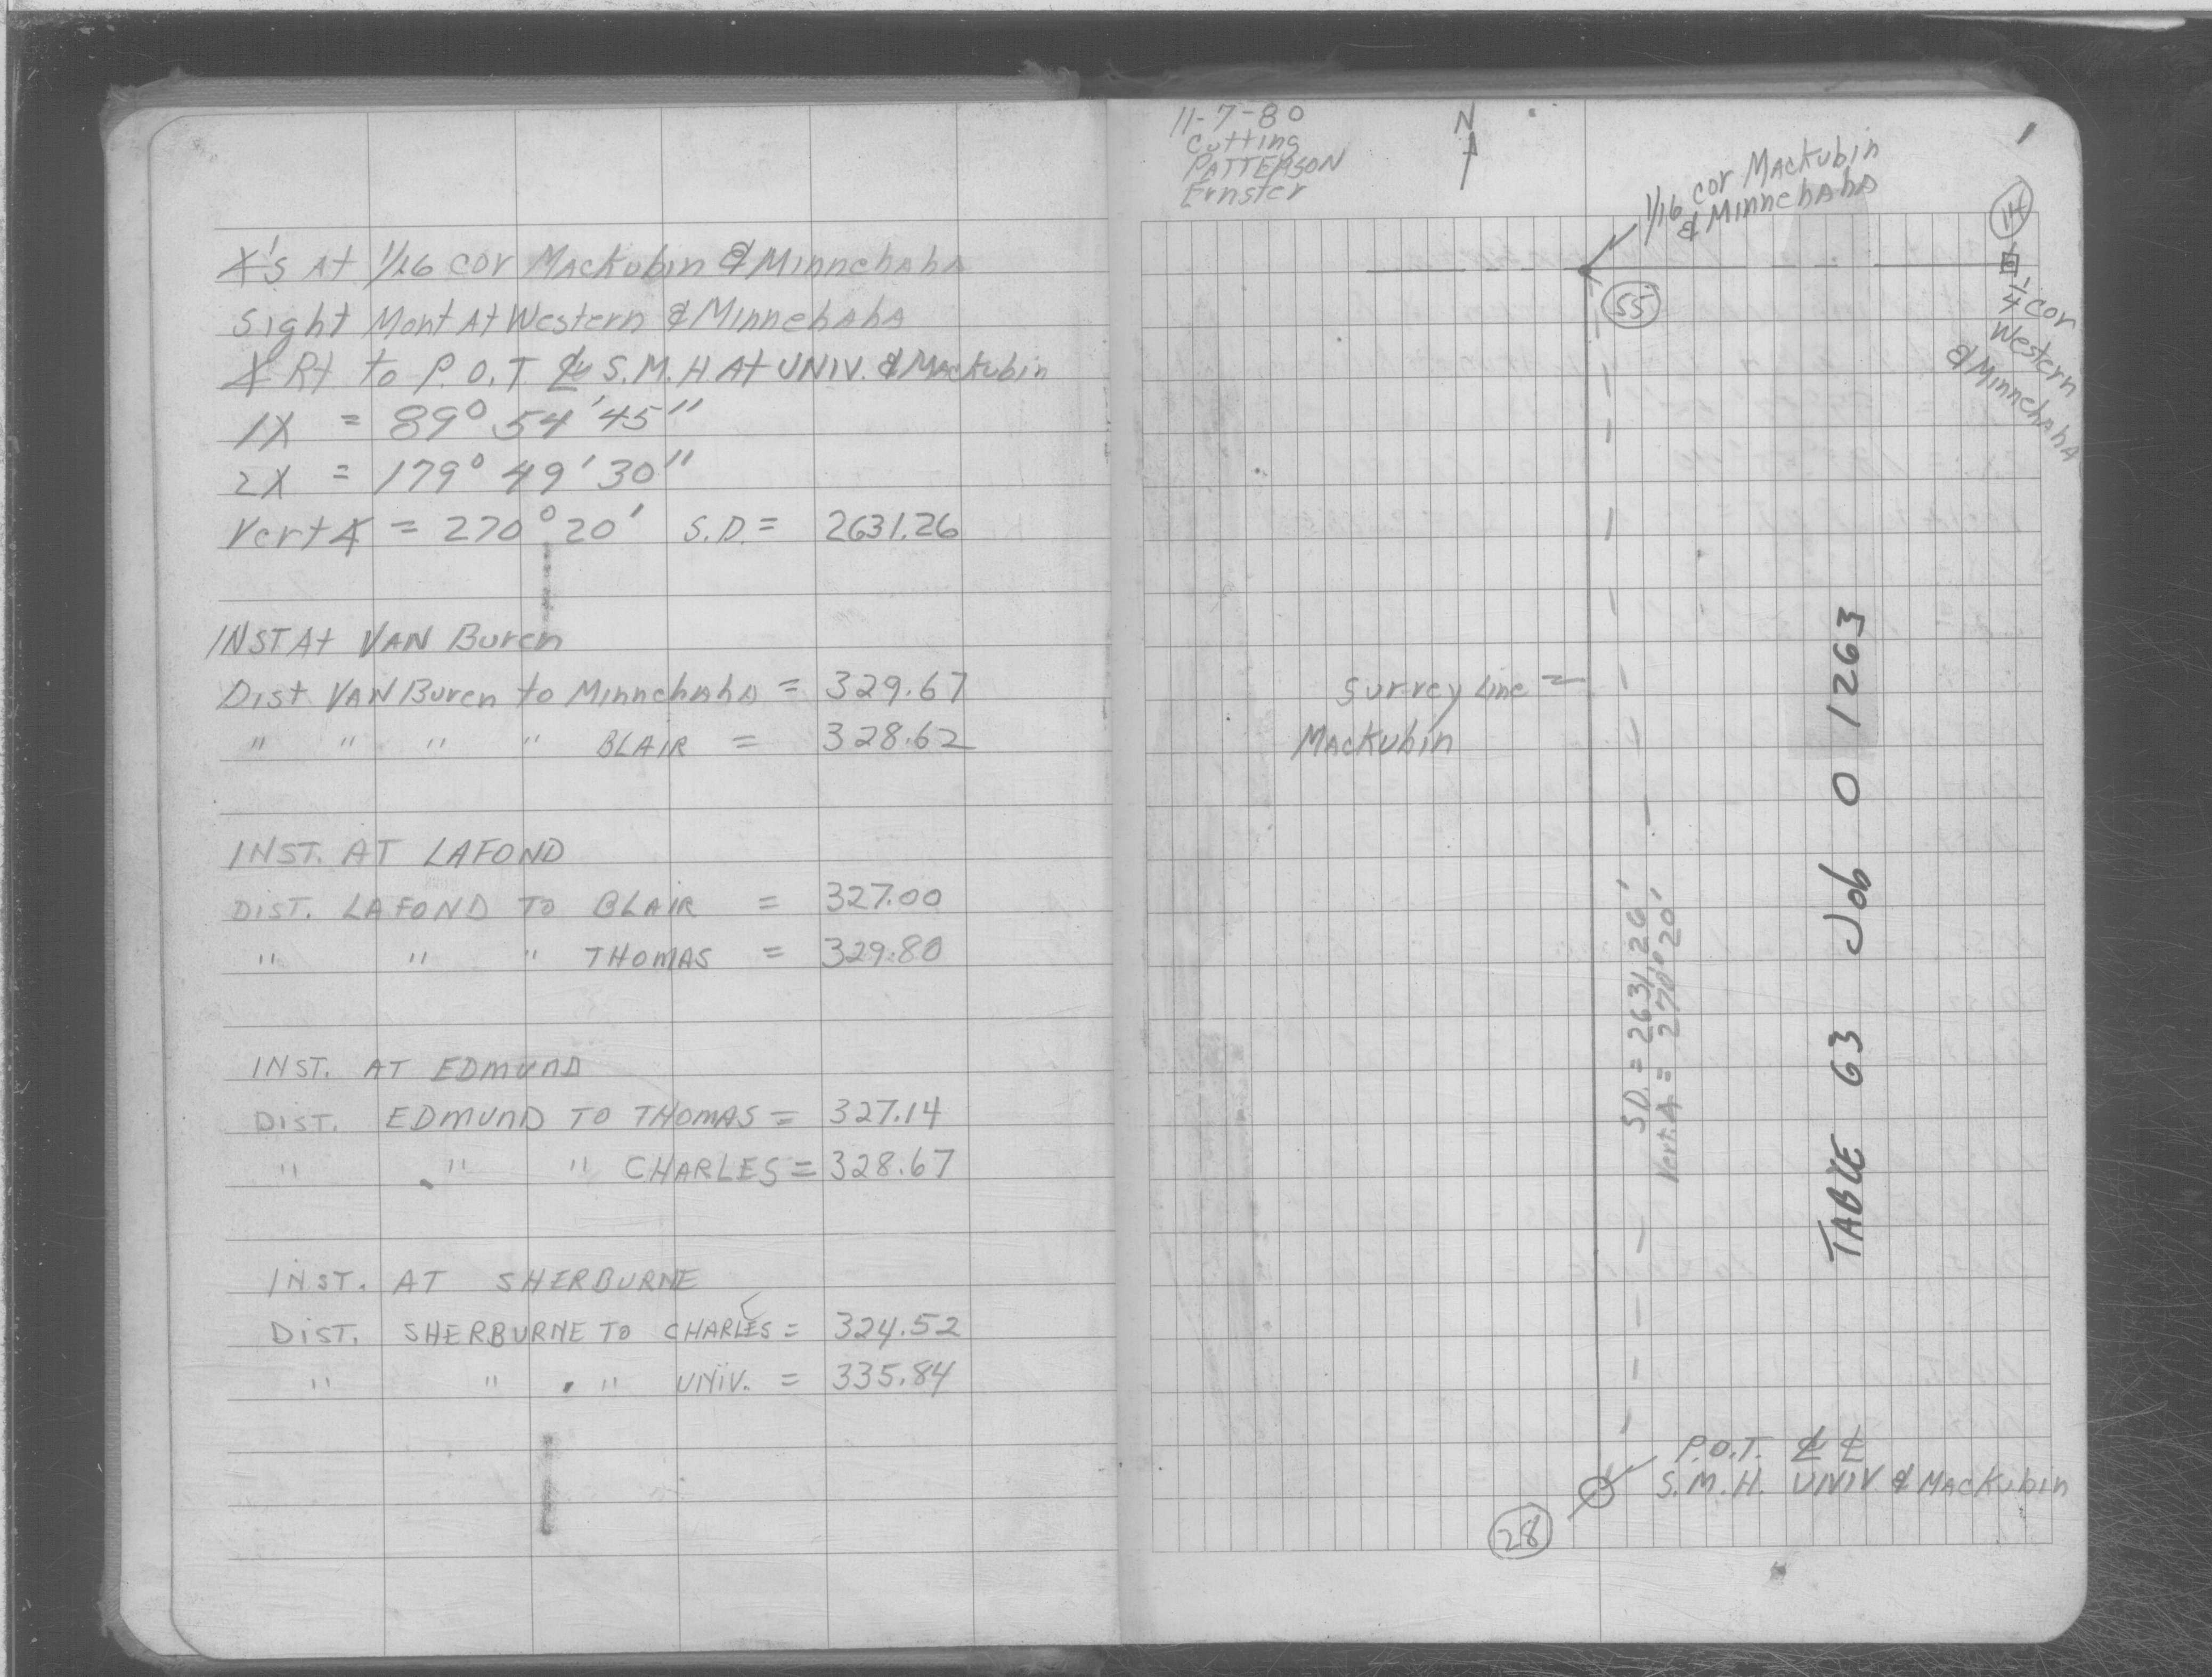 ∡'s At 1/16 cor Mackubin & Minnehaha
Sight Mont At Western & Minnehaha
∡ Rt to P.O.T. ℄ S.M.H. At UNIV. & Mackubin
1X = 89° 54' 45"
2X = 179° 49' 30"
Vert ∡ = 270° 20' S.D. = 2631.26
INST At VAN Buren
Dist VAN Buren to Minnehaha = 329.67
" " " " BLAIR = 328.62
INST. AT LAFOND
DIST. LAFOND TO BLAIR = 327.00
" " " THOMAS = 329.80
INST. AT EDMUND
DIST. EDMUND TO THOMAS = 327.14
" " " CHARLES = 328.67
INST. AT SHERBURNE
DIST. SHERBURNE TO CHARLES = 324.52
" " " UNIV. = 335.84
11-7-80
Cutting
PATTERSON
Ernster
N
1
1/16 cor Mackubin
& Minnehaha
14
1/4 cor
Western
& Minnehaha
55
Survey Line =
Mackubin
S.D. = 2631.26'
Vert. ∡ = 270° 20'
TABLE 63 Job 01263
P.O.T. ℄ ℄
S.M.H. UNIV & Mackubin
28